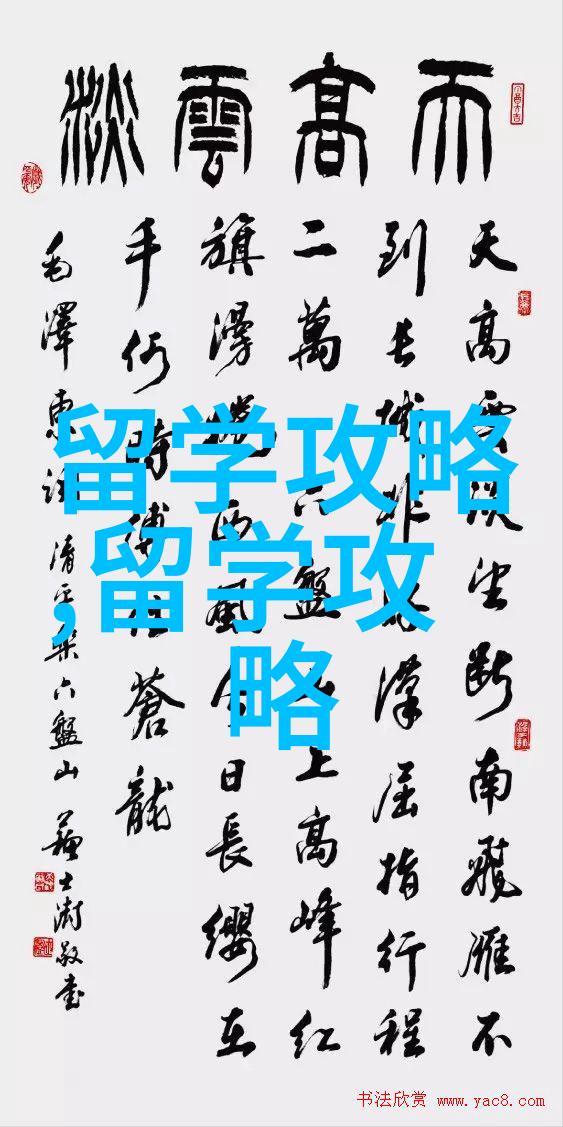 天高雲淡
天高雲淡望斷南飛雁不
到长城非好漢屈指行程
二萬六盤山上高峰紅
旗漫捲西風今日長纓在
手何時縛住蒼龍
毛澤東詞清平樂六盤山 蘇士澍敬書
留学攻略
,留学攻
略
书法欣赏 www.yac8.com